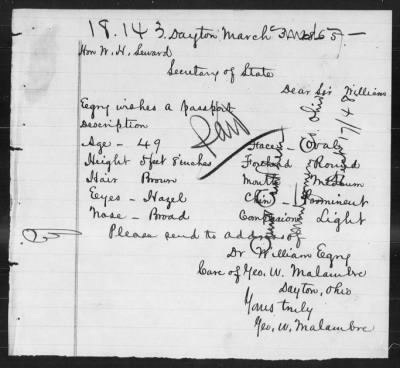 18.143. Dayton March 3rd 1865
Hon W. H. Seward
Secretary of State
Dear Sir William
Eegry wishes a passport
Description
Paid
Age - 49 Face - Oval
Height 5 feet 8 inches Forhead Round
Hair Brown Mouth Medium
Eyes - Hazel Chin - Prominent
Nose - Broad Complexion Light
Please send to address of
Dr William Eegry
Care of Geo. W. Malambre
Dayton, Ohio
Yours truly
Geo. W. Malambre
Ohio
17/48